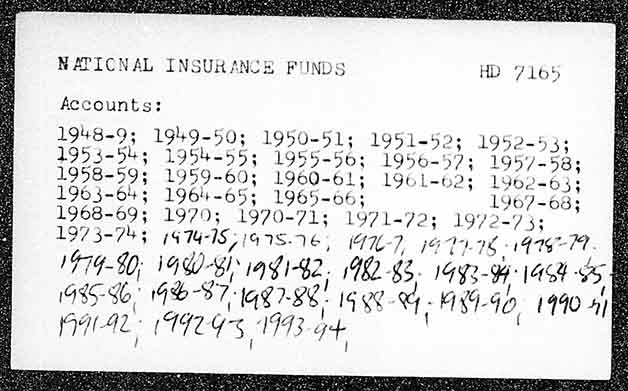 NATIONAL INSURANCE FUNDS HD 7165
Accounts:
1948-9; 1949-50; 1950-51; 1951-52; 1952-53;
1953-54; 1954-55; 1955-56; 1956-57; 1957-58;
1958-59; 1959-60; 1960-61; 1961-62; 1962-63;
1963-64; 1964-65; 1965-66; 1967-68;
1968-69; 1970; 1970-71; 1971-72; 1972-73;
1973-74; 1974-75; 1975-76; 1976-7, 1977-78; 1978-79.
1979-80; 1980-81; 1981-82. 1982-83. 1983-84. 1984-85
1985-86; 1986-87; 1987-88; 1988-89, 1989-90, 1990-91
1991-92; 1992-93, 1993-94,